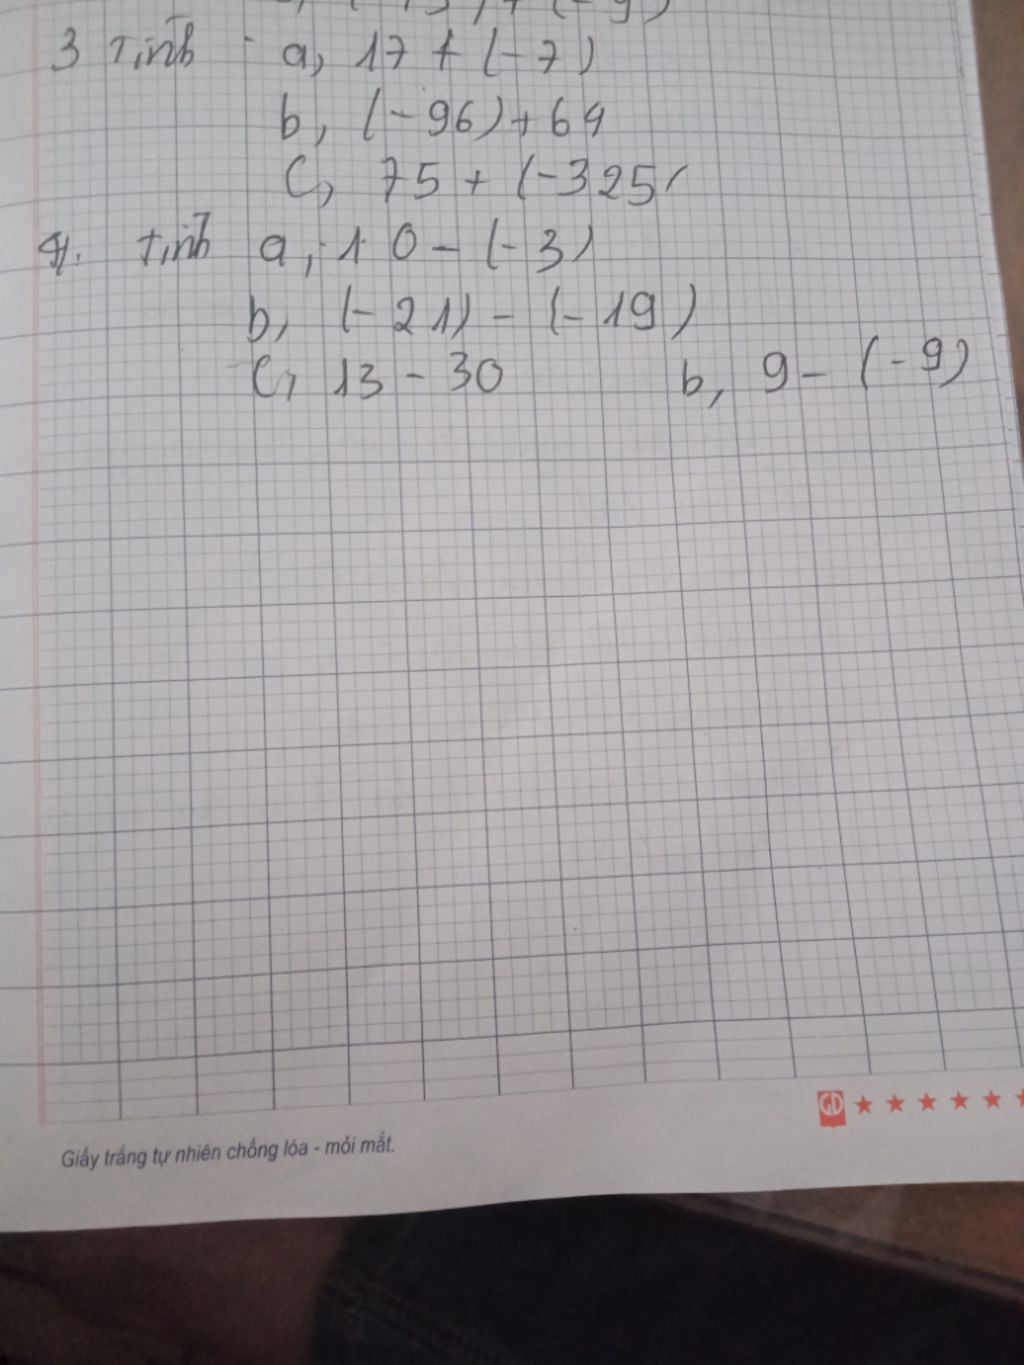 3 Tính a, 17 + (-7)
b, (-96) + 64
c, 75 + (-325(
4. Tính a, 10 - (-3)
b, (-21) - (-19)
c, 13 - 30 b, 9 - (-9)
GD
Giấy trắng tự nhiên chống lóa - mỏi mắt.